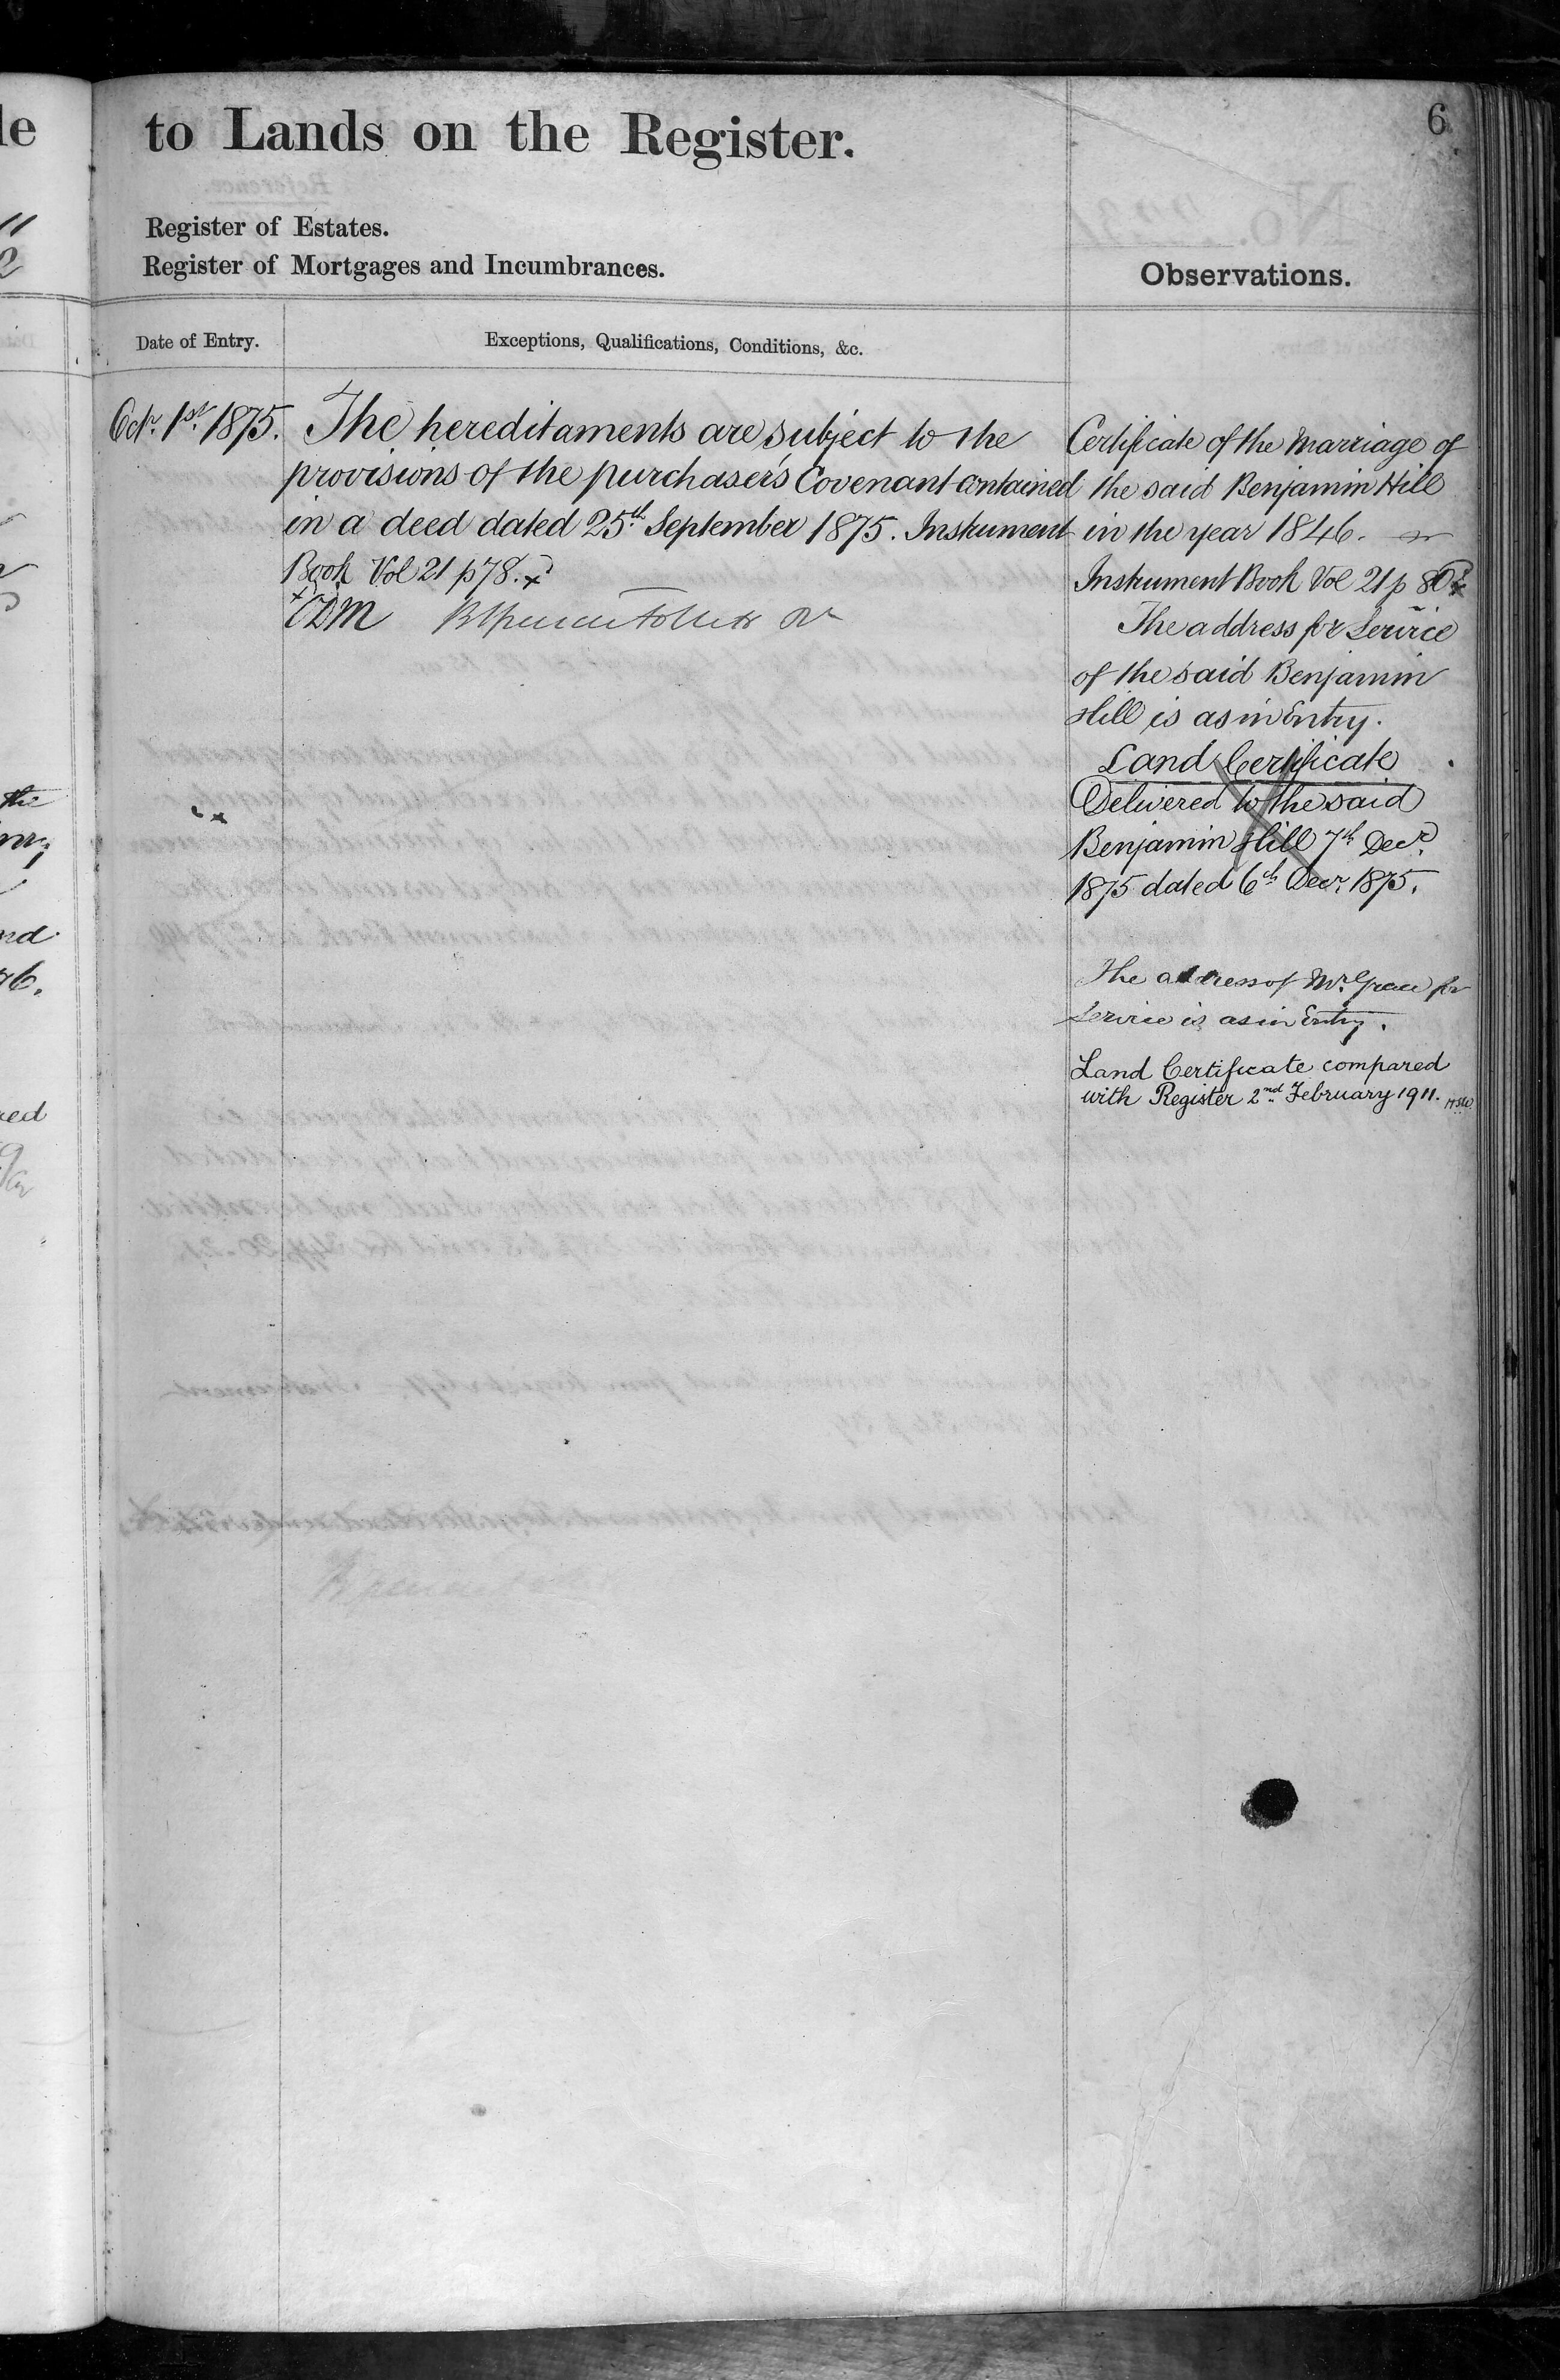 6
to Lands on the Register.
Register of Estates.
Register of Mortgages and Incumbrances.
Observations.
Date of Entry.
Exceptions, Qualifications, Conditions, &c.
Octr. 1st 1875.
The hereditaments are subject to the
provisions of the purchaser's Covenant contained
in a deed dated 25th September 1875. Instrument
Book Vol 21 p 78.
CDM
Certificate of the Marriage of
the said Benjamin Hill
in the year 1846.
Instrument Book Vol 21 p 80
The address for Service
of the said Benjamin
Hill is as in Entry.
Land Certificate
Delivered to the said
Benjamin Hill 7th Decr.
1875 dated 6th Decr. 1875.
The address of Mr. Grace for
Service is as in Entry.
Land Certificate compared
with Register 2nd February 1911.
the
nd
76.